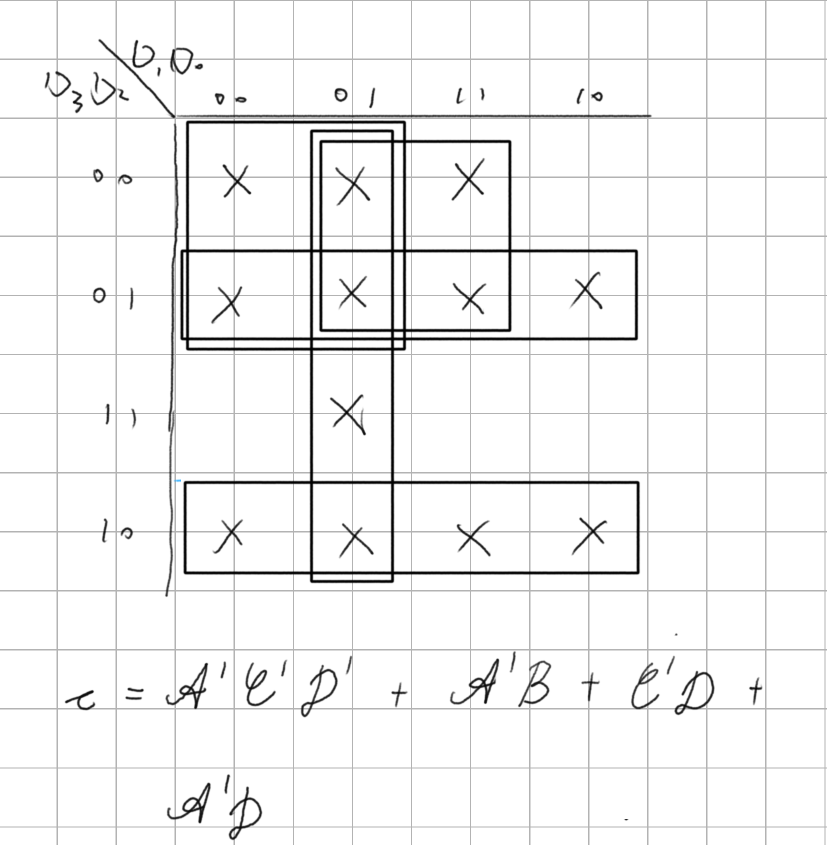 D₁D₀
D₃D₂ 00 01 11 10
00 X X X
01 X X X X
11 X
10 X X X X
c = A'C'D' + A'B + C'D +
A'D